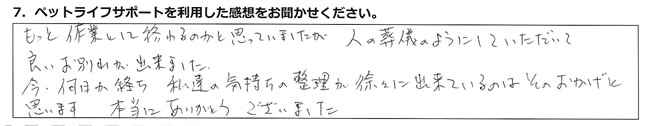 7. ペットライフサポートを利用した感想をお聞かせください。
もっと作業として終わるのかと思っていましたが 人の葬儀のようにしていただいて
良いお別れが出来ました。
今、何日か経ち 私達の気持ちの整理が徐々に出来ているのはそのおかげと
思います 本当にありがとうございました